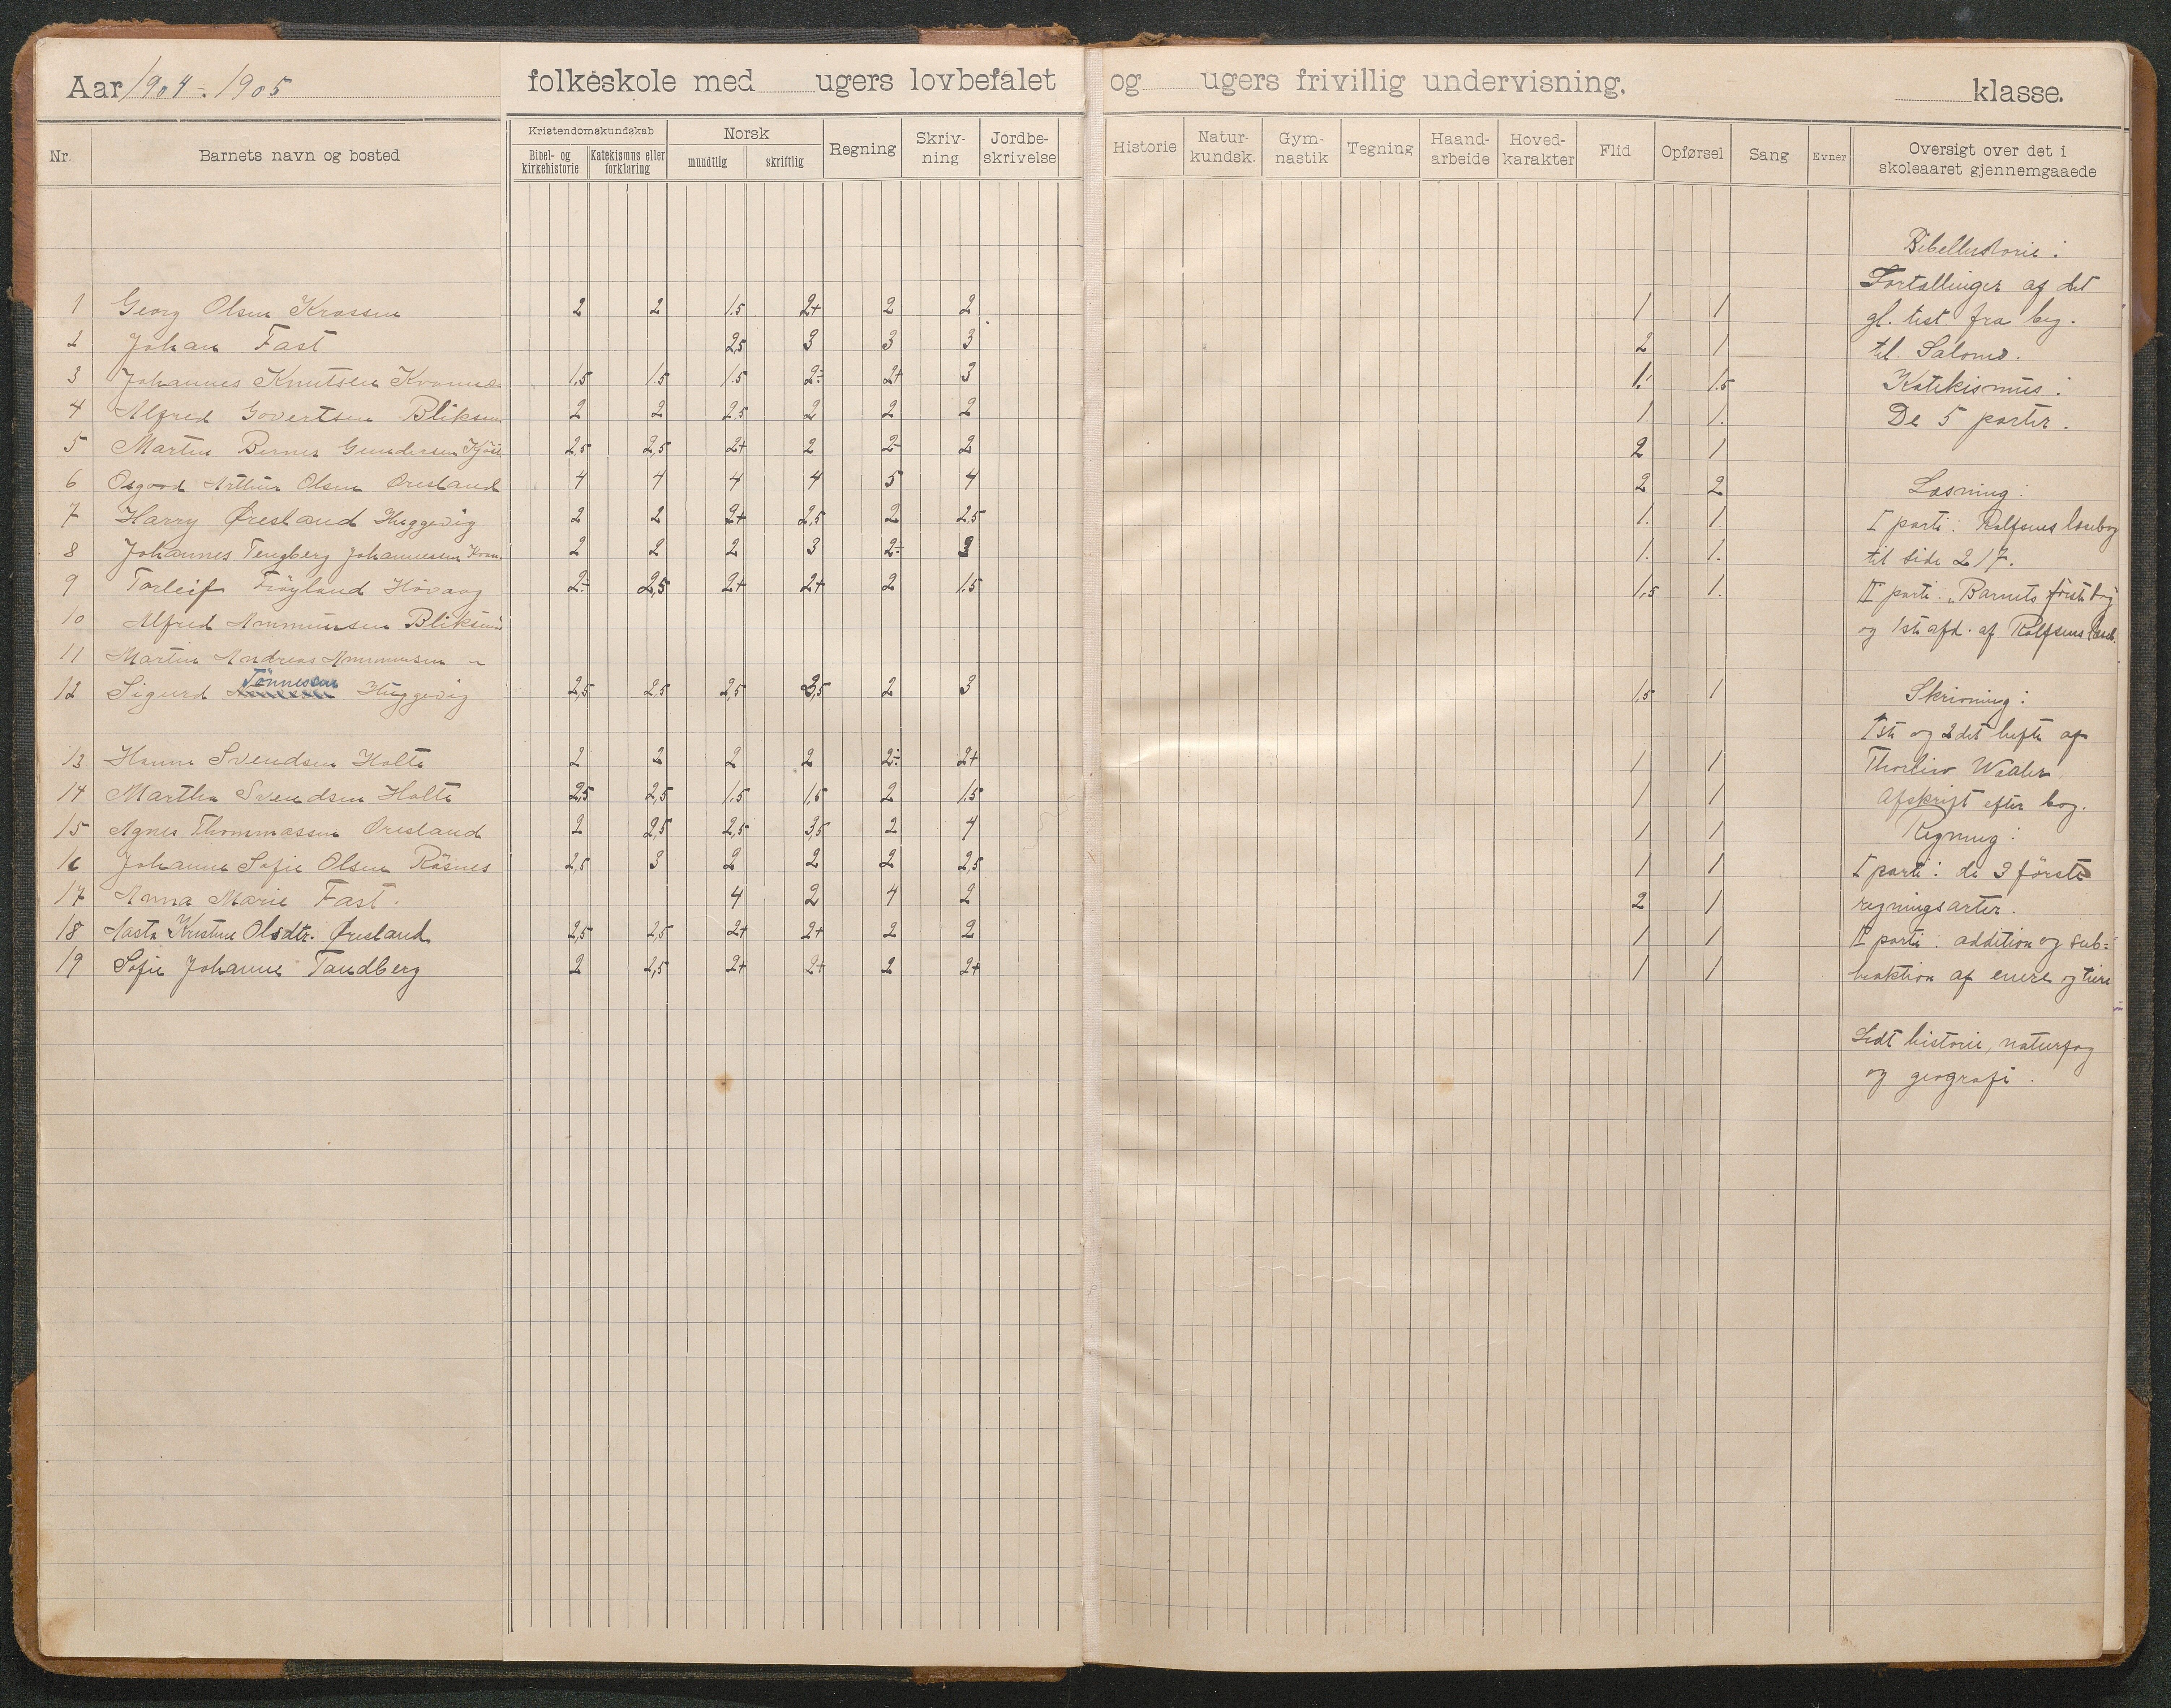 Aar 1904-1905 folkeskole med ugers lovbefalet og ugers frivillig undervisning. klasse.
Nr. Barnets navn og bosted Kristendomskundskab Bibel- og kirkehistorie Katekismus eller forklaring Norsk mundtlig skriftlig Regning Skriv-ning Jordbe-skrivelse Historie Natur-kundsk. Gym-nastik Tegning Haand-arbeide Hoved-karakter Flid Opførsel Sang Evner Oversigt over det i skoleaaret gjennemgaaede
1 Georg Olsen Krossen 2 2 1.5 2+ 2 2 1 1
2 Johan Fast 2,5 3 3 3 2 1
3 Johannes Knutsen 1,5 1.5 1.5 2÷ 2+ 3 1. 1.5
4 Alfred Govertsen Bliksun 2 2 2.5 2 2 2 1. 1.
5 Martin Berner Gundersen 2,5 2,5 2+ 2 2- 2 2 1
6 Osgood Arthur Olsen Øresland 4 4 4 4 5 4 2 2
7 Harry Øresland Huggevig 2 2 2+ 2,5 2 2,5 1. 1.
8 Johannes Tengberg Johannessen Kvan. 2 2 2 3 2÷ 3 1. 1.
9 Torleif Frøyland Høvaag 2÷ 2,5 2+ 2+ 2 1.5 1,5 1.
10 Alfred Ammunsen Bliksun
11 Martin Andreas Ammunsen -
12 Sigurd Tönnessen Huggevig 2,5 2,5 2,5 3,5 2 3 1,5 1
13 Hanna Svendsen Holte 2 2 2 2 2÷ 2+ 1 1
14 Martha Svendsen Holte 2,5 2,5 1.5 1,5 2 1.5 1 1
15 Agnes Thommassen Øresland 2 2,5 2,5 3,5 2 4 1 1
16 Johanne Sofie Olsen Råsnes 2,5 3 2 2 2 2,5 1 1
17 Anna Marie Fast. 4 2 4 2 2 1
18 Aasta Kristine Olsdtr. Øresland 2,5 2,5 2+ 2+ 2 2 1 1
19 Sofie Johanne Tandberg 2 2,5 2+ 2+ 2 2+ 1 1
Bibelhistorie:
Fortællinger af det
gl. test. fra beg.
til Salomo.
Katekismus:
De 5 parter.
Læsning:
I parti: Rolfsens læsebog
til side 217.
II parti: "Barnets første bog
og 1ste afd. af Rolfsens læseb.
Skrivning:
1ste og 2det hefte af
Thorleiv Waaler
Afskrift efter bog.
Regning:
I parti: de 3 første
regningsarter.
II parti: addition og sub=
traktion af enere og tiere
Lidt historie, naturfag
og geografi.